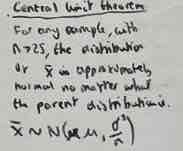 Central limit theorem
For any sample, with
n>25, the distribution
of x̄ is approximately
normal no matter what
the parent distribution is.
x̄ ~ N(μ, σ²/n)